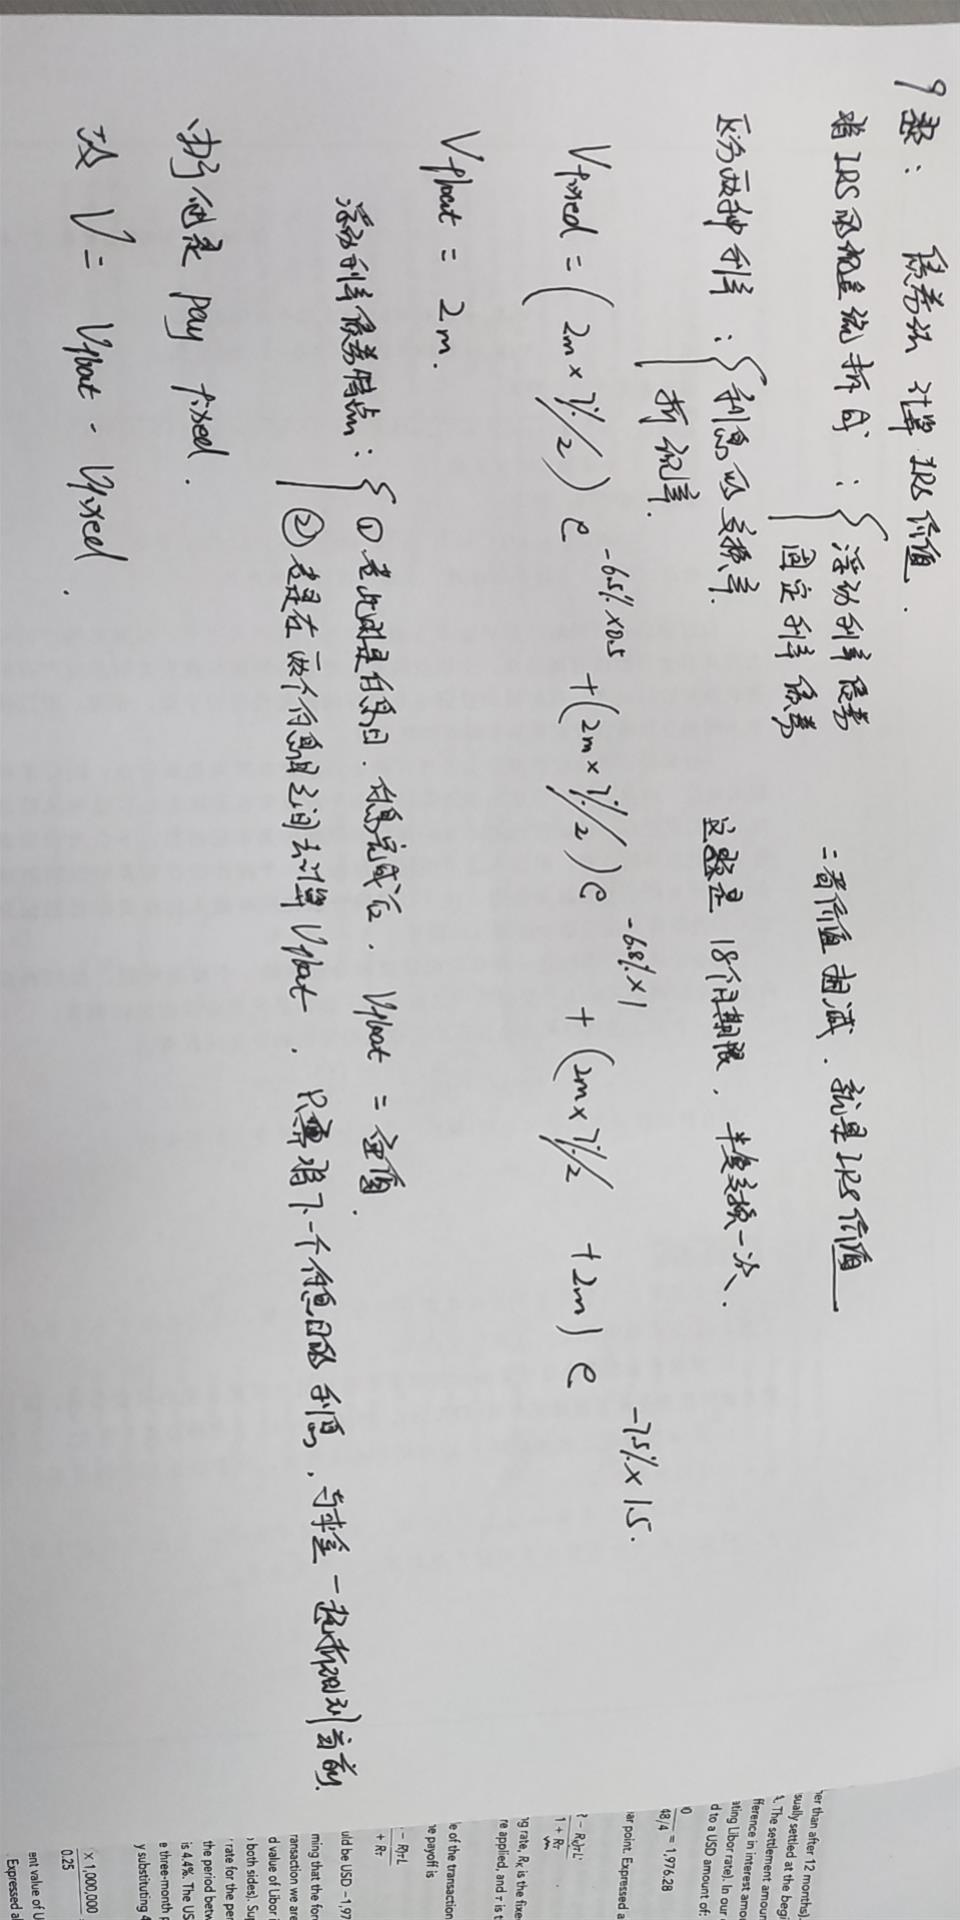 9题： 债券法 计算 IRS 价值.
将 IRS 的现金流拆成：{ 浮动利率债券
固定利率债券
二者价值相减. 就是 IRS 价值
区分两种利率：{ 利息的交换率.
折现率.
这题是 18个月期限. 半年交换一次.
Vfixed = ( 2m × 7%/2 ) e^-6.5%×0.5 + ( 2m × 7%/2 ) e^-6.8%×1 + ( 2m × 7%/2 + 2m ) e^-7.5%×1.5.
Vfloat = 2m.
浮动利率债券特点：{ ① 若此时是付息日. 付息完成后. Vfloat = 面值.
② 若是在两个付息日之间去计算 Vfloat. 只需将下一个付息日的利息, 与本金一起折现到当前.
由于他是 pay fixed.
故 V = Vfloat - Vfixed.
her than after 12 months).
sually settled at the begi
. The settlement amoun
fference in interest amo
ating Libor rate). In our
d to a USD amount of:
48/4 = 1,976.28
ar point. Expressed a
1 + Rτ
ng rate, RK is the fixe
re applied, and τ is t
e of the transaction
e payoff is
+ Rτ
uld be USD –1,97
ming that the for
ransaction we are
d value of Libor i
both sides). Su
rate for the per
the period betw
is 4.4%. The US
e three-month
y substituting 4
× 1,000,000
0.25
ent value of U
Expressed a